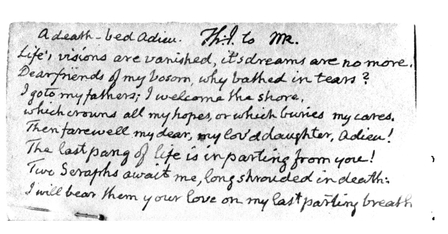 A death-bed Adieu. Th:J. to MR.
Life's visions are vanished, it's dreams are no more.
Dear friends of my bosom, why bathed in tears?
I go to my fathers; I welcome the shore,
which crowns all my hopes, or which buries my cares.
Then farewell my dear, my lov'd daughter, Adieu!
The last pang of life is in parting from you!
Two Seraphs await me, long shrouded in death:
I will bear them your love on my last parting breath